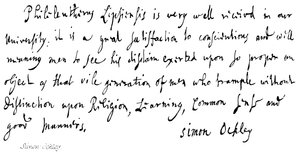 Phileleutherus Lipsiensis is very well reciv'd in our
University. it is a great satisfaction to conscientious and well
meaning men to see his disdain exerted upon so proper an
object as that vile generation of men who trample without
Distinction upon Religion, Learning, Common sense and
good manners.
Simon Ockley
Simon Ockley